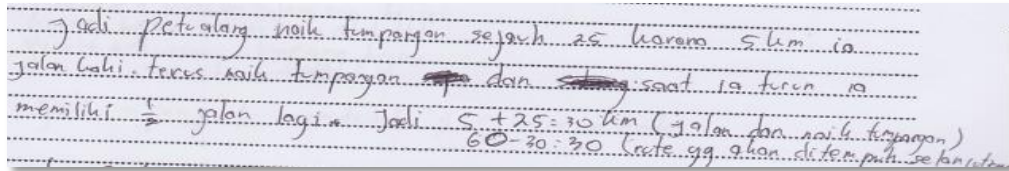 Jadi petualang naik tumpangan sejauh 25 karena 5 km ia
jalan kaki. terus naik tumpangan dan saat ia turun ia
memiliki 1/2 jalan lagi. Jadi 5 + 25 = 30 km (jalan dan naik tumpangan)
60-30:30 (rute yg akan ditempuh selanjutnya